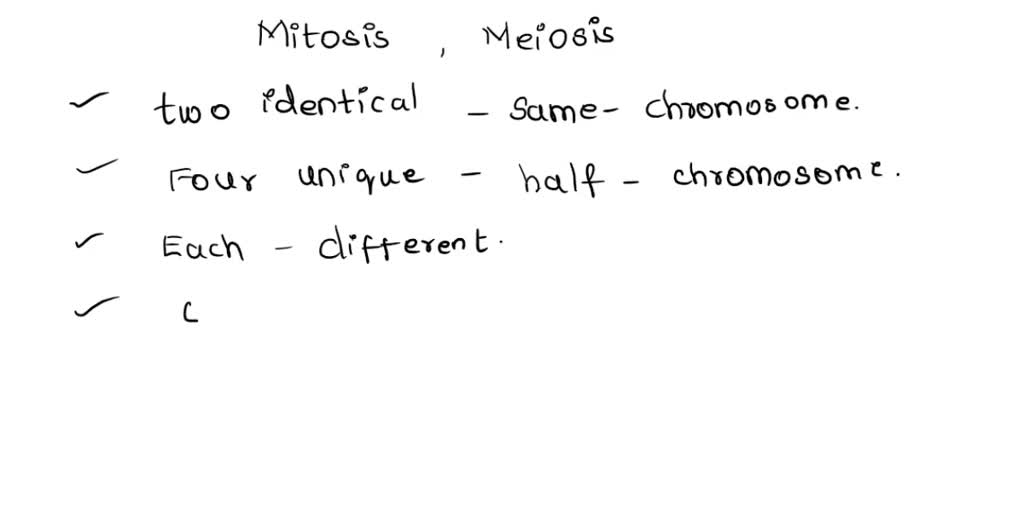 Mitosis , Meiosis
✓ two identical - same - chromosome.
✓ Four unique - half - chromosome.
✓ Each - different.
✓ C